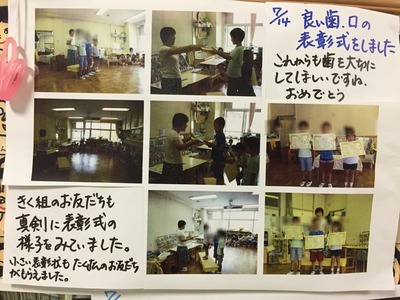 7/14 良い歯.口の
表彰式をしました
これからも歯を大切に
してほしいですね.
おめでとう
きく組のお友だちも
真剣に表彰式の
様子をみていました。
小さい表彰状もたくさんのお友だち
がもらえました。